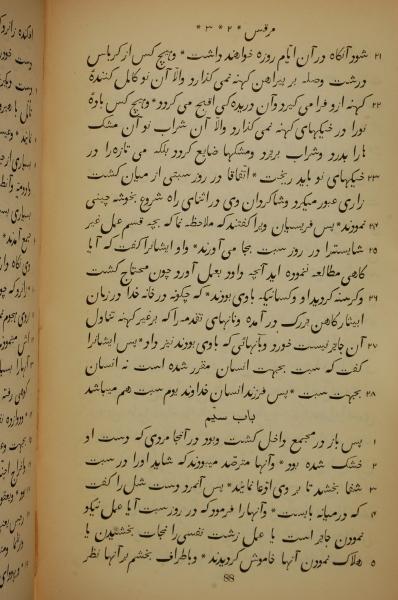 مرقس * ۲ * ۳ *
۲۱ شود آنگاه در آن ایام روزه خواهند داشت * وهیچ کس از کرباس
درشت وصله بر پیراهن کهنه نمی گذارد والّا آن نو کامل کنندهٔ
۲۲ کهنه ازو فرا می گیرد وآن دریدگی اقبح می گردد * وهیچ کس بادهٔ
نورا در خیکهای کهنه نمی گذارد والّا آن شراب نو آن مشک
هارا بدرد وشراب بریزد ومشکها ضایع گردد بلکه می تازه را در
۲۳ خیکهای نو باید ریخت * اتفاقا در روز سبتی از میان کشت
زاری عبور میکرد وشاگردان وی در اثنای راه شروع بخوشه چینی
۲۴ نمودند * پس فریسیان ویرا گفتند که ملاحظه نما که بچه قسم عمل غیر
۲۵ شایسترا در روز سبت بجا می آورند * واو ایشانرا گفت که آیا
گاهی مطالعه ننموده اید آنچه داود بعمل آورد چون محتاج گشت
۲۶ وگرسنه گردید او وکسانیکه با وی بودند * که چگونه در خانه خدا در زمان
ابیثار کاهن بزرگ در آمده ونانهای تقدمه را که بر غیر کهنه تناول
۲۷ آن جایز نیست خورد وبآنهائی که با وی بودند نیز داد * پس ایشانرا
گفت که سبت بجهت انسان مقرر شده است نه انسان
۲۸ بجهت سبت * پس فرزند انسان خداوند یوم سبت هم میباشد
باب سیّم
۱ پس باز در مجمع داخل گشت وبود در آنجا مردی که دست او
۲ خشک شده بود * وآنها مترصد میبودند که شاید اورا در سبت
۳ شفا بخشد تا بر وی ادّعا نمایند * پس آنمرد دست شل را گفت
۴ که در میانه بایست * وآنها را فرمود که در روز سبت آیا عمل نیکو
نمودن جایز است یا عمل زشت نفسی را نجات بخشیدن یا
۵ هلاک نمودن آنها خاموش گردیدند * وباطراف بخشم بر آنها نظر
88